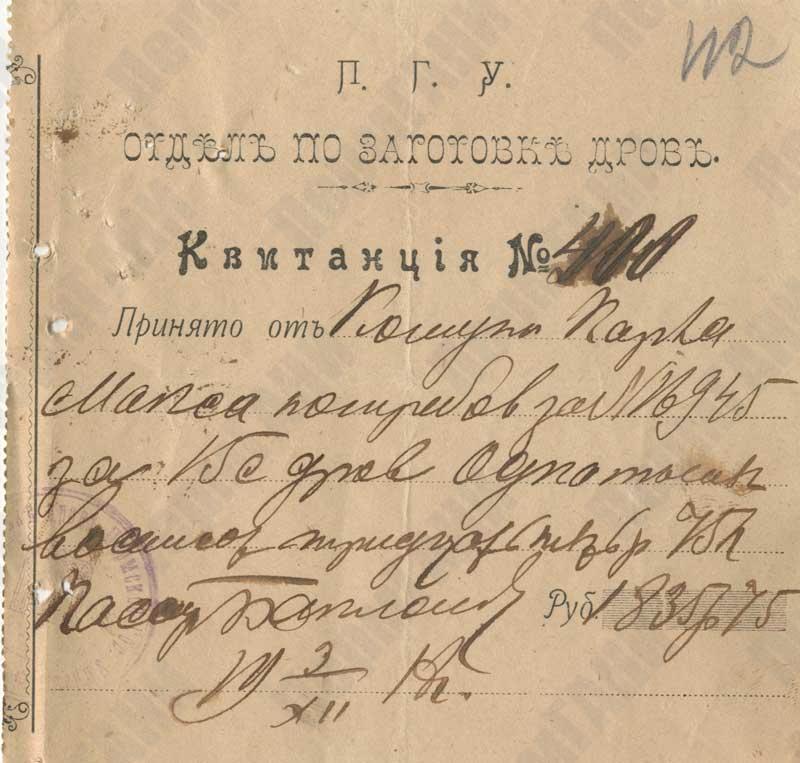 112
П. Г. У.
ОТДѢЛЪ ПО ЗАГОТОВКѢ ДРОВЪ.
Квитанція № 400
Принято отъ Карла
Макса потребов за № 6945
за дров Одна тысяч
восемсот тридцать пять р 75 к
Руб. 1835 р 75
19 3/XII